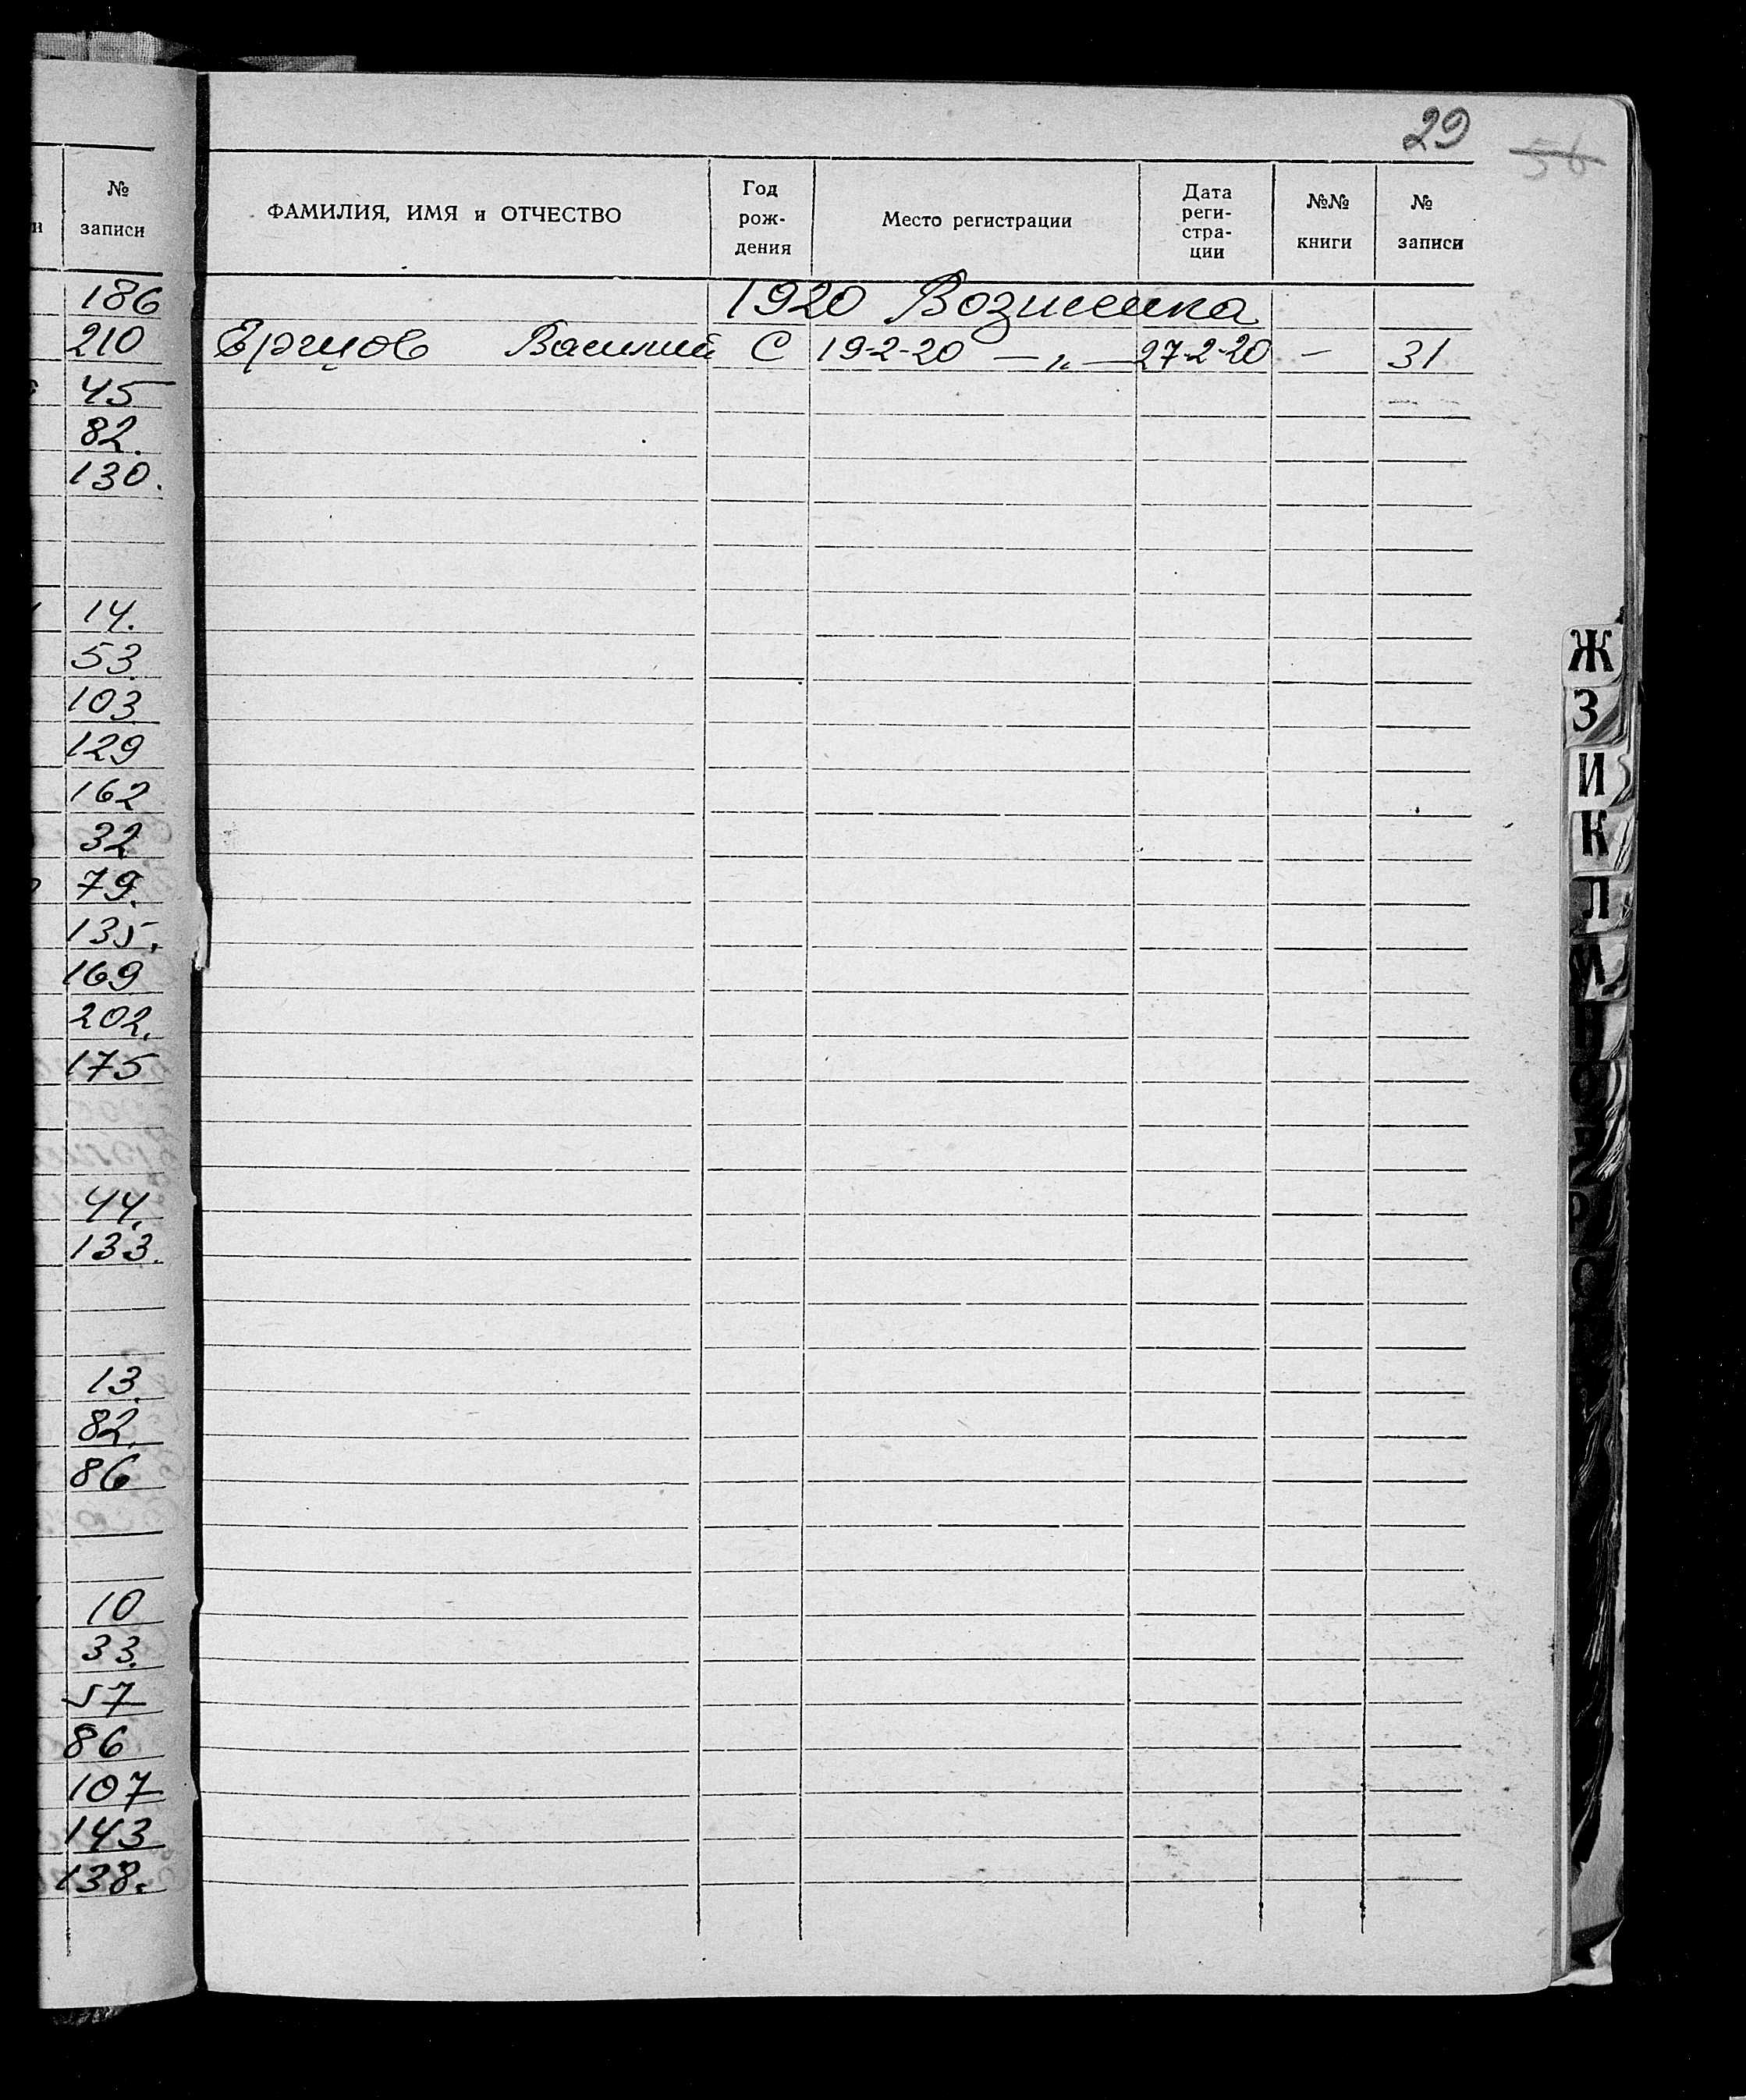 29
56
№
записи
186
210
45
82.
130.
14.
53.
103
129
162
32
79.
135.
169
202.
175
44.
133.
13.
82.
86
10
33.
57
86
107
143
138.
ФАМИЛИЯ, ИМЯ и ОТЧЕСТВО Год рож- дения Место регистрации Дата реги- стра- ции №№ книги № записи
1920
Василий С 19-2-20 — „ — 27-2-20 — 31
Ж
З
И
К
Л
М